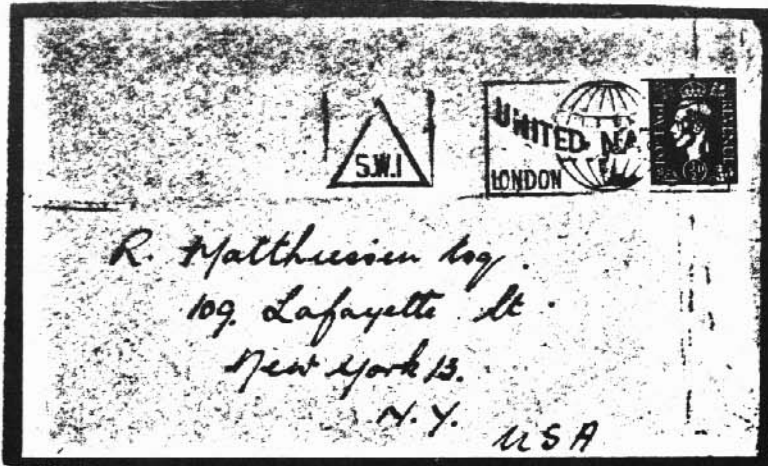 S.W.1
UNITED NA
LONDON
REVENUE
R. Matthiessen Esq.
109. Lafayette St.
New York 13.
N.Y.
USA